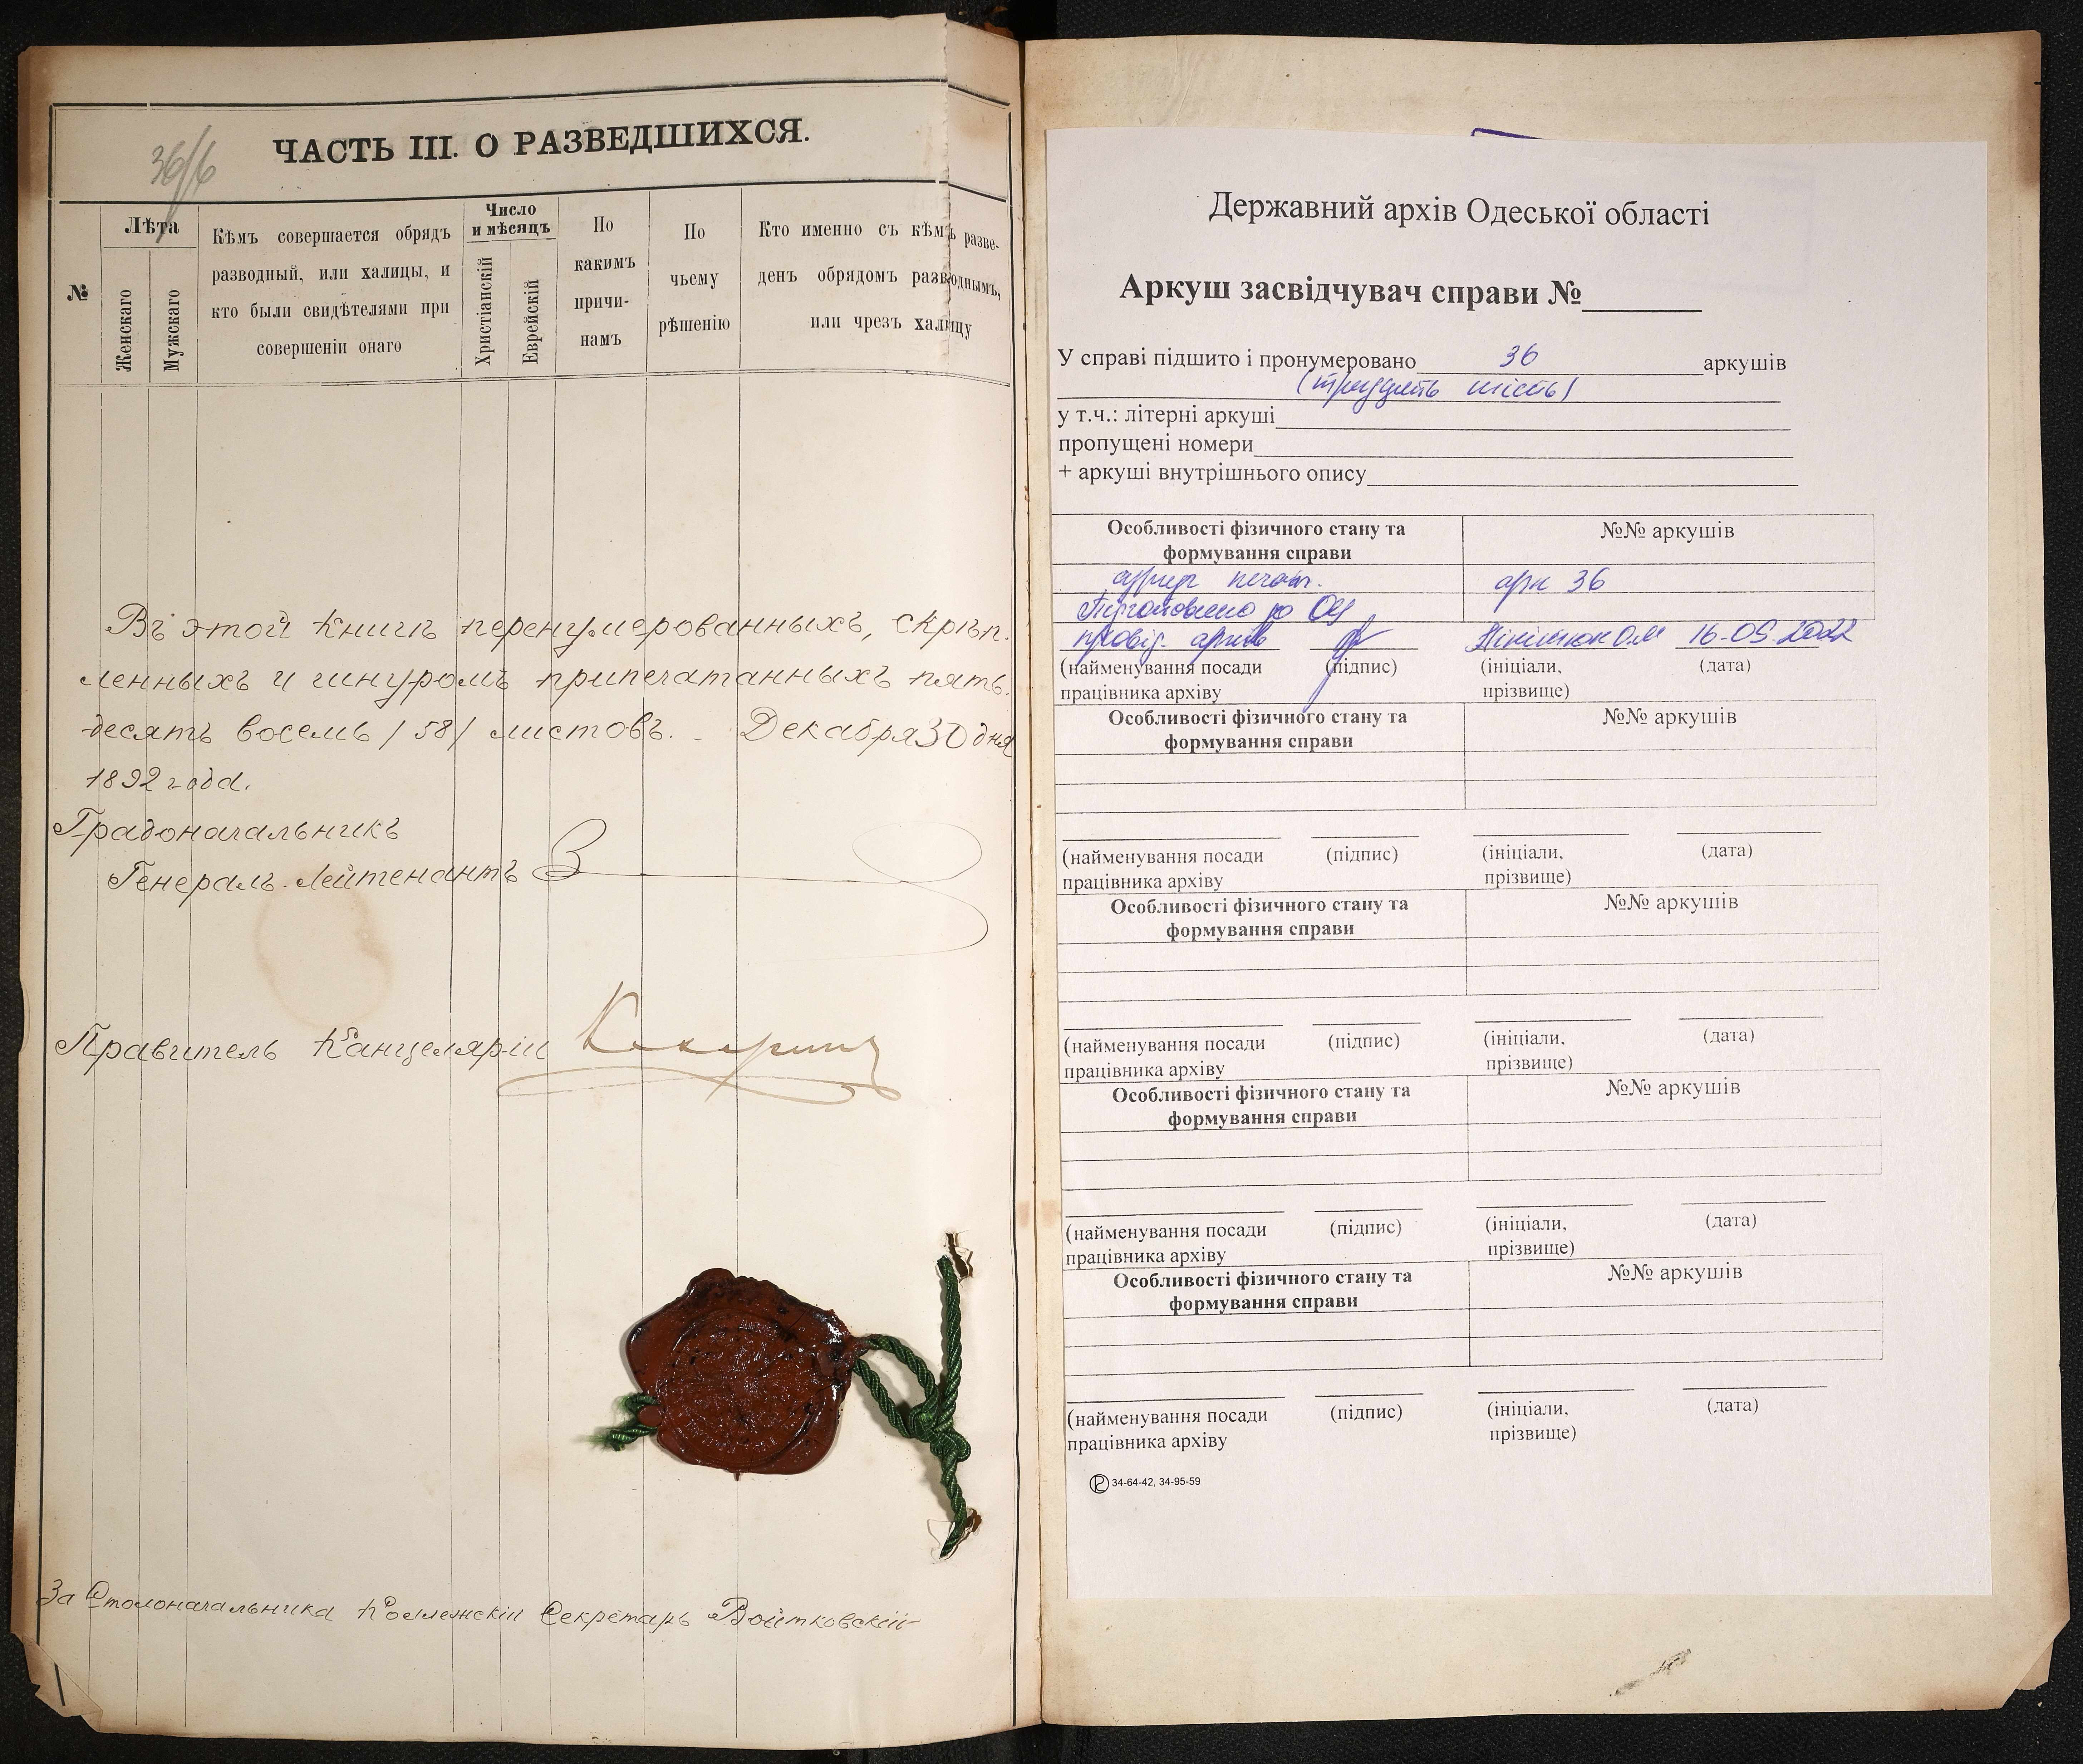 ЧАСТЬ III. О РАЗВЕДШИХСЯ.
36/6
№
Лѣта
Женскаго
Мужскаго
Кѣмъ совершается обрядъ
разводный, или халицы, и
кто были свидѣтелями при
совершеніи онаго
Число
и мѣсяцъ
Христіанскій
Еврейскій
По
какимъ
причи-
намъ
По
чьему
рѣшенію
Кто именно съ кѣмъ разве-
денъ обрядомъ разводнымъ,
или чрезъ халицу
Въ этой книгѣ перенумерованныхъ, скрѣп-
ленныхъ и шнуромъ припечатанныхъ пять-
десятъ восемь /58/ листовъ. Декабря 30 дня
1892 года.
Градоначальникъ
Генералъ-Лейтенантъ
Правитель Канцеляріи
За Столоначальника Коллежскій Секретарь Войтковскій
Державний архів Одеської області
Аркуш засвідчувач справи №
У справі підшито і пронумеровано 36 аркушів
(тридцять шість)
у т.ч.: літерні аркуші
пропущені номери
+ аркуші внутрішнього опису
Особливості фізичного стану та
формування справи
№№ аркушів
арк 36
Підготовлено до ОЦ
провід. архів 16.05.2022
(найменування посади
працівника архіву
(підпис)
(ініціали,
прізвище)
(дата)
Особливості фізичного стану та
формування справи
№№ аркушів
(найменування посади
працівника архіву
(підпис)
(ініціали,
прізвище)
(дата)
Особливості фізичного стану та
формування справи
№№ аркушів
(найменування посади
працівника архіву
(підпис)
(ініціали,
прізвище)
(дата)
Особливості фізичного стану та
формування справи
№№ аркушів
(найменування посади
працівника архіву
(підпис)
(ініціали,
прізвище)
(дата)
Особливості фізичного стану та
формування справи
№№ аркушів
(найменування посади
працівника архіву
(підпис)
(ініціали,
прізвище)
(дата)
34-64-42, 34-95-59